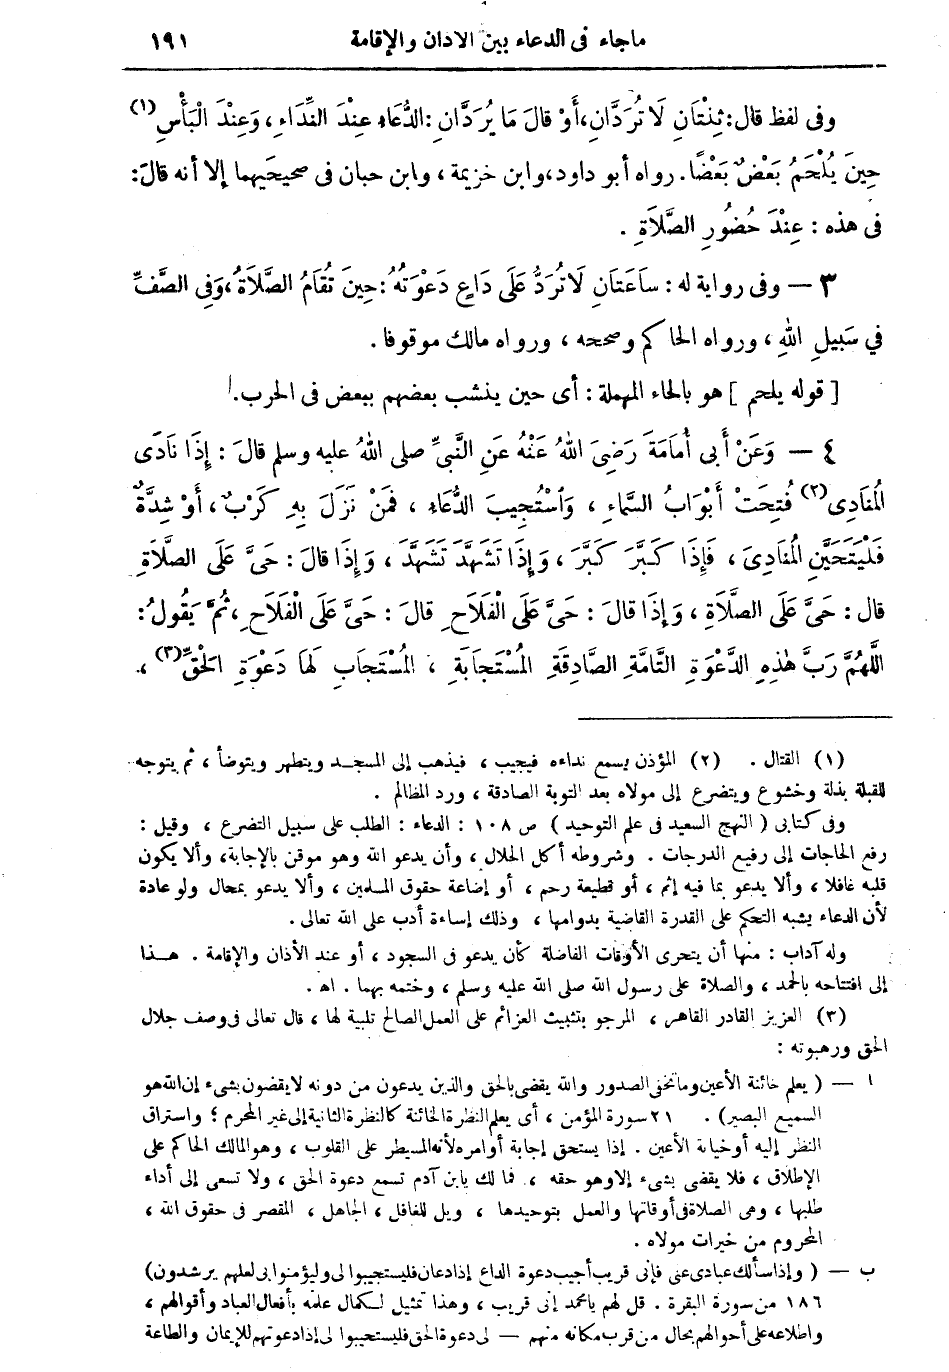 ماجاء فى الدعاء بين الاذان والإقامة ١٩١
وفى لفظ قال: ثِنْتَانِ لَا تُرَدَّانِ، أَوْ قالَ مَا يُرَدَّانِ: الدُّعَاءِ عِنْدَ النِّدَاءِ، وَعِنْدَ الْبَأْسِ (١)
حِينَ يُلْحَمُ بَعْضٌ بَعْضًا. رواه أبو داود، وابن خزيمة، وابن حبان فى صحيحيهما إلا أنه قالَ:
فى هذه: عِنْدَ حُضُورِ الصَّلَاةِ.
٣ — وفى رواية له: سَاعَتَانِ لَا تُرَدُّ عَلَى دَاعٍ دَعْوَتُهُ: حِينَ تُقَامُ الصَّلَاةُ، وَفِى الصَّفِّ
فِي سَبِيلِ اللهِ، ورواه الحاكم وصححه، ورواه مالك موقوفا.
[ قوله يلحم ] هو بالحاء المهملة: أى حين ينشب بعضهم ببعض فى الحرب.
٤ — وَعَنْ أَبِى أُمَامَةَ رَضِىَ اللهُ عَنْهُ عَنِ النَّبِىِّ صلى اللهُ عليه وسلم قالَ: إِذَا نَادَى
الْمُنَادِى (٢) فُتِحَتْ أَبْوَابُ السَّمَاءِ، وَاسْتُجِيبَ الدُّعَاءِ، فَمَنْ نَزَلَ بِهِ كَرْبٌ، أَوْ شِدَّةٌ
فَلْيَتَحَيَّنِ الْمُنَادِىَ، فَإِذَا كَبَّرَ كَبَّرَ، وَإِذَا تَشَهَّدَ تَشَهَّدَ، وَإِذَا قالَ: حَىَّ عَلَى الصَّلَاةِ
قال: حَىَّ عَلَى الصَّلَاةِ، وَإِذَا قالَ: حَىَّ عَلَى الْفَلَاحِ قالَ: حَىَّ عَلَى الْفَلَاحِ، ثُمَّ يَقُولُ:
اللّٰهُمَّ رَبَّ هٰذِهِ الدَّعْوَةِ التَّامَّةِ الصَّادِقَةِ الْمُسْتَجَابَةِ، الْمُسْتَجَابِ لَهَا دَعْوَةِ الْحَقِّ (٣)،
(١) القتال. (٢) المؤذن يسمع نداءه فيجيب، فيذهب إلى المسجد ويتطهر ويتوضأ، ثم يتوجه
للقبلة بذلة وخشوع ويتضرع إلى مولاه بعد التوبة الصادقة، ورد المظالم.
وفى كتابى ( النهج السعيد فى علم التوحيد ) ص ١٠٨: الدعاء: الطلب على سبيل التضرع، وقيل:
رفع الحاجات إلى رفيع الدرجات. وشروطه أكل الحلال، وأن يدعو الله وهو موقن بالإجابة، وألا يكون
قلبه غافلا، وألا يدعو بما فيه إثم، أو قطيعة رحم، أو إضاعة حقوق المسلمين، وألا يدعو بمحال ولو عادة
لأن الدعاء يشبه التحكم على القدرة القاضية بدوامها، وذلك إساءة أدب على الله تعالى.
وله آداب: منها أن يتحرى الأوقات الفاضلة كأن يدعو فى السجود، أو عند الأذان والإقامة. هذا
إلى افتتاحه بالحمد، والصلاة على رسول الله صلى الله عليه وسلم، وختمه بهما. اهـ.
(٣) العزيز القادر القاهر، المرجو بتثبيث العزائم على العمل الصالح تلبية لها، قال تعالى فى وصف جلال
الحق ورهبوته:
ا — ( يعلم خائنة الأعين وما تخفى الصدور والله يقضى بالحق والذين يدعون من دونه لا يقضون بشىء إن الله هو
السميع البصير). ٢١ سورة المؤمن، أى يعلم النظرة الخائنة كالنظرة الثانية إلى غير المحرم؛ واستراق
النظر إليه أو خيانة الأعين. إذا يستحق إجابة أوامره لأنه المسيطر على القلوب، وهو المالك الحاكم على
الإطلاق، فلا يقضى بشىء إلا وهو حقه، فما لك يابن آدم تسمع دعوة الحق، ولا تسعى إلى أداء
طلبها، وهى الصلاة فى أوقاتها والعمل بتوحيدها، ويل للغافل، الجاهل، المقصر فى حقوق الله،
المحروم من خيرات مولاه.
ب — ( وإذا سألك عبادى عنى فإنى قريب أجيب دعوة الداع إذا دعان فليستجيبوا لى وليؤمنوا بى لعلهم يرشدون)
١٨٦ من سورة البقرة. قل لهم يا محمد إنى قريب، وهذا تمثيل لكمال علمه بأفعال العباد وأقوالهم،
واطلاعه على أحوالهم بحال من قرب مكانه منهم — لى دعوة الحق فليستجيبوا لى إذا دعوتهم للإيمان والطاعة